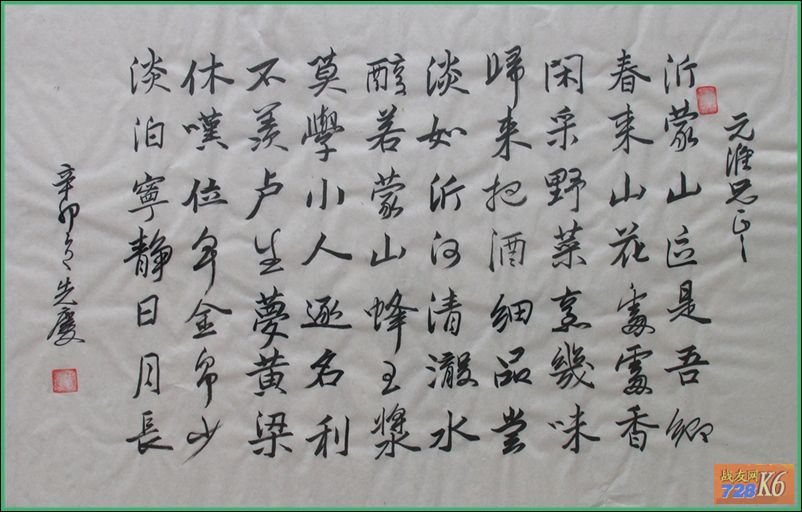 元淮兄正
沂蒙山区是吾乡
春来山花处处香
閑采野菜烹幾味
歸来把酒細品尝
淡如沂河清澈水
醇若蒙山蜂王漿
莫學小人逐名利
不羡卢生夢黄梁
休嘆位卑金帛少
淡泊寧静日月長
辛卯春先慶
战友网
728K6